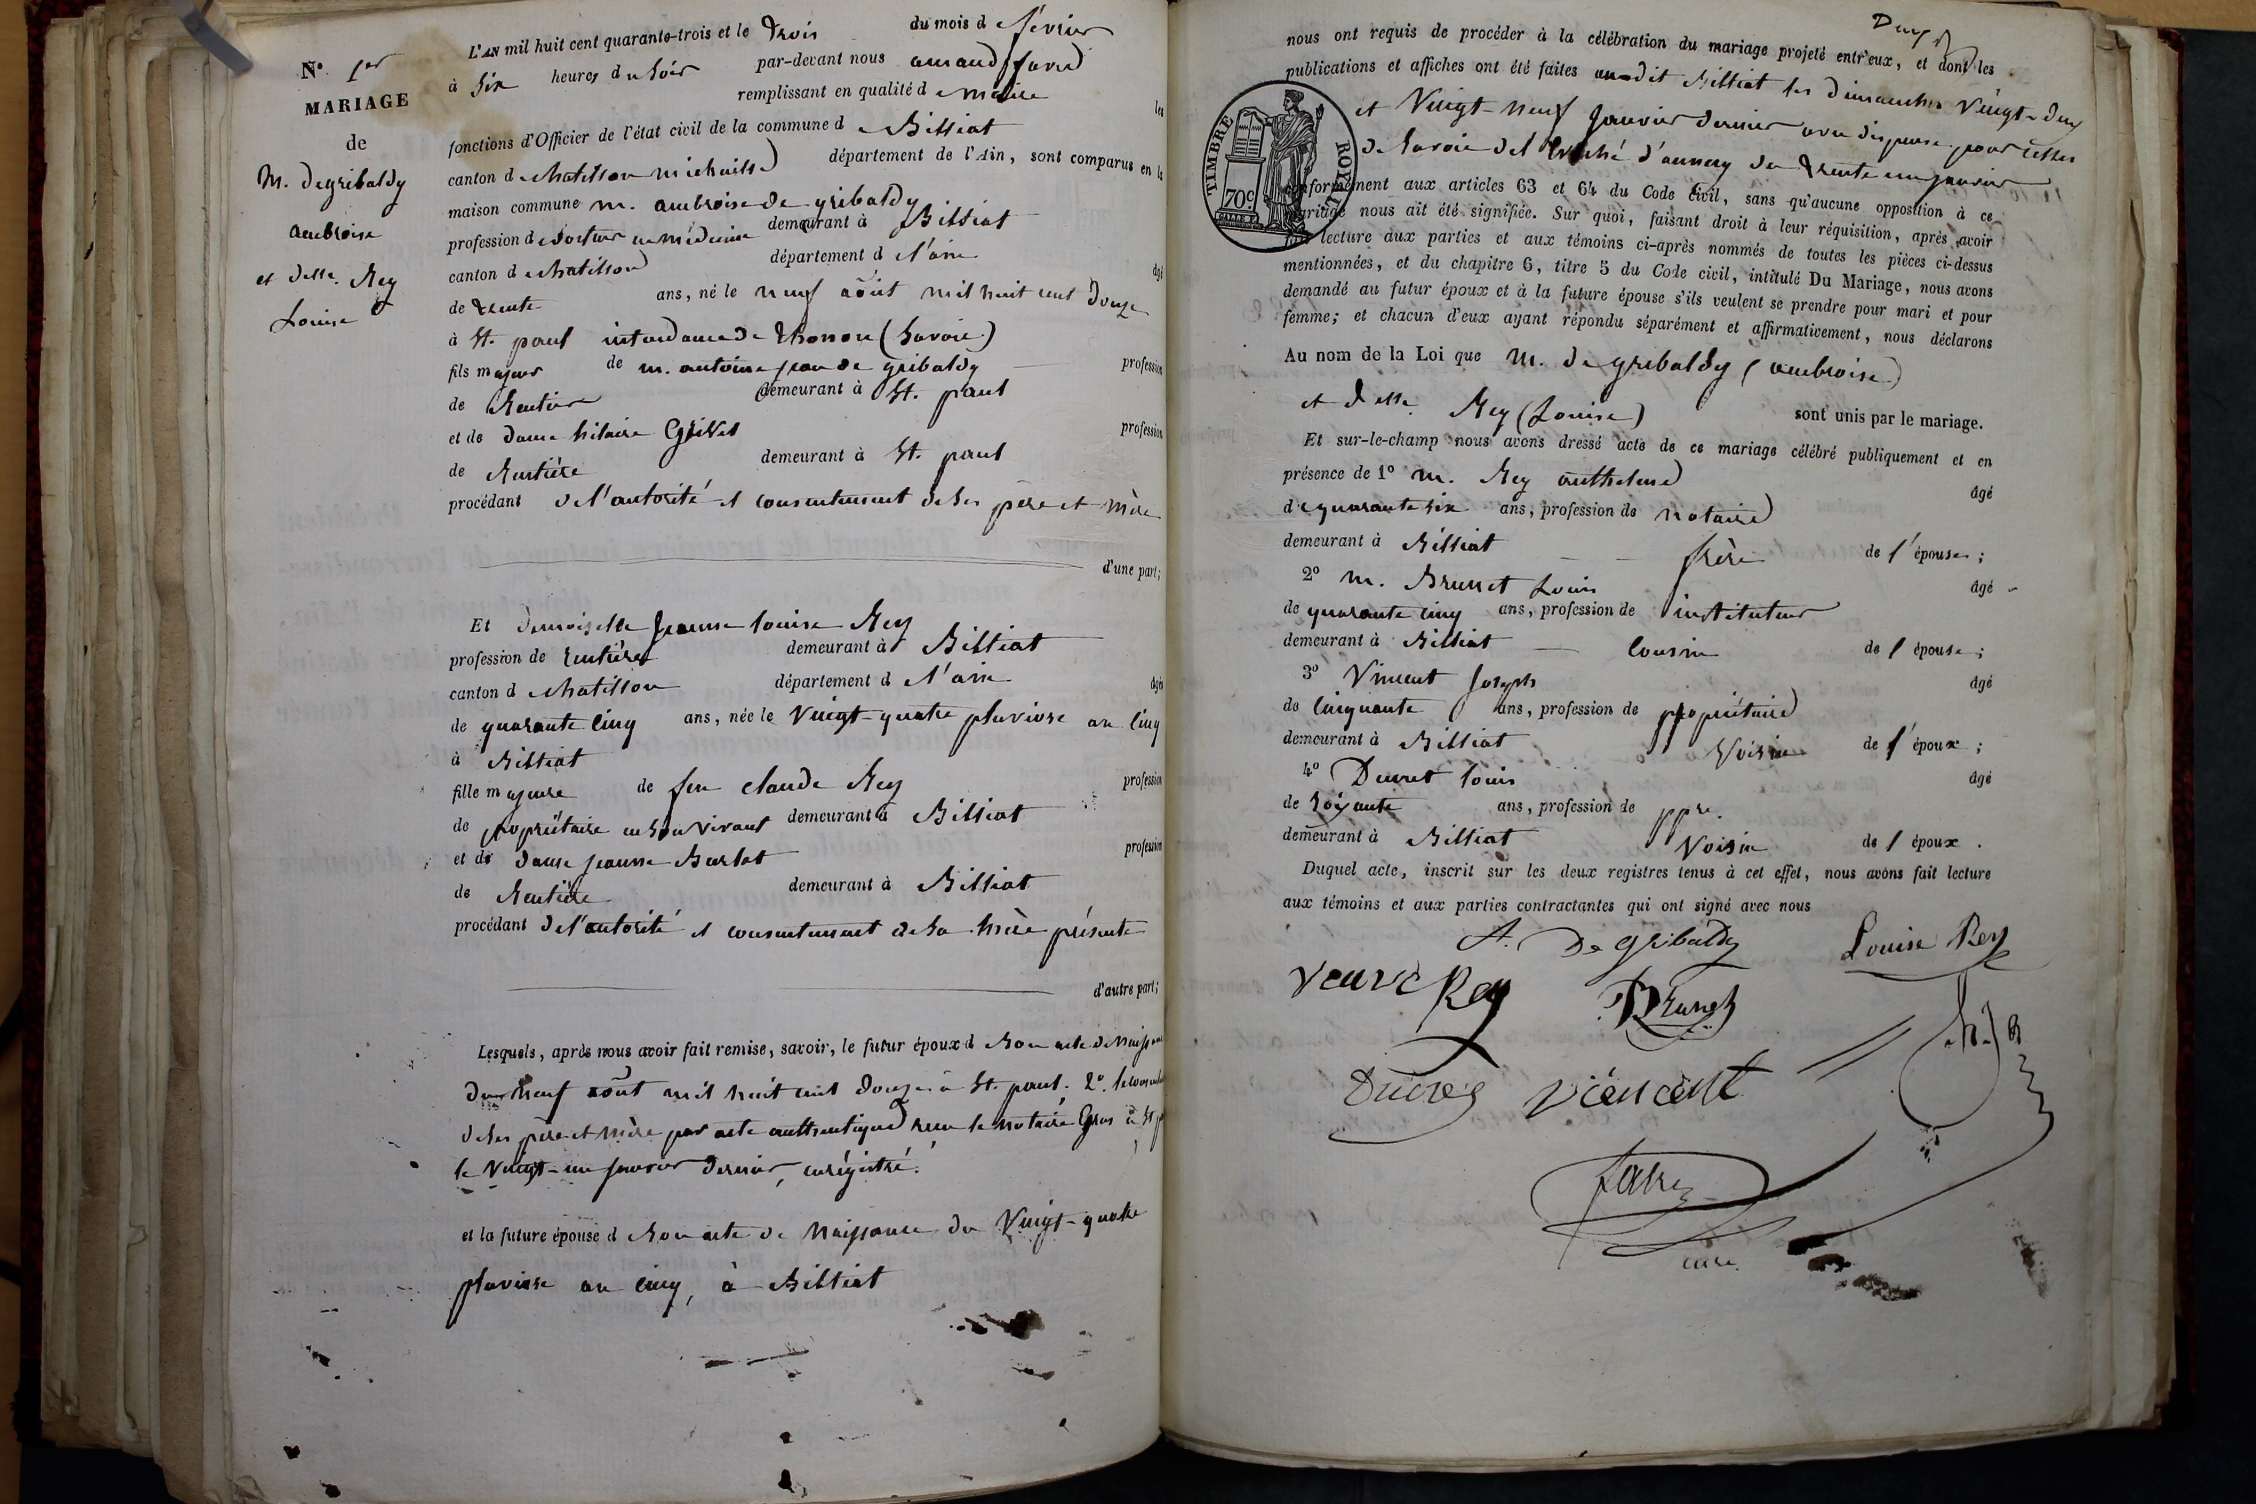 N° 1er
MARIAGE
de
M. Degribaldy
ambroise
et delle. Rey
Louise
L'AN mil huit cent quarante-trois et le Trois du mois d e février
à Six heures du Soir par-devant nous armand favre
remplissant en qualité d e maire les
fonctions d'Officier de l'état civil de la commune d e Billiat
canton d e chatillon michaille département de l'Ain, sont comparus en la
maison commune m. ambroise de gribaldy
profession de docteur en médecine demeurant à Billiat
canton d e chatillon département d e l'ain âgé
de trente ans, né le neuf août mil huit cent Douze
à St. paul intendance de Thonon (Savoie)
fils majeur de m. antoine jean de gribaldy profession
de Rentier demeurant à St. paul
et de dame hilaire Grivet profession
de Rentière demeurant à St. paul
procédant de l'autorité et consentement de ses père et mère
d'une part;
Et demoiselle Jeanne louise Rey
profession de Rentière demeurant à Billiat
canton d e chatillon département d e l'ain âgée
de quarante cinq ans, née le Vingt-quatre pluviose an Cinq
à Billiat
fille majeure de feu claude Rey profession
de propriétaire en son vivant demeurant à Billiat
et de dame jeanne Burlat profession
de Rentière demeurant à Billiat
procédant de l'autorité et consentement de sa mère présente
d'autre part;
Lesquels, après nous avoir fait remise, savoir, le futur époux d e son acte de Naissance
du Neuf août mil huit cent Douze à St. paul. 2°. le
de ses père et mère par acte authentique reçu le notaire Gros à St
le Vingt-un janvier dernier, enrégistré.
et la future épouse d e son acte de Naissance du Vingt-quatre
pluviose an cinq, à Billiat
nous ont requis de procéder à la célébration du mariage projeté entr'eux, et dont les
publications et affiches ont été faites audit Billiat les dimanches Vingt-deux
et Vingt-neuf Janvier dernier avec dispense pour celles
de Savoie de l'Evêché d'annecy du trente un janvier
TIMBRE ROYAL
70c
conformément aux articles 63 et 64 du Code Civil, sans qu'aucune opposition à ce
mariage nous ait été signifiée. Sur quoi, faisant droit à leur réquisition, après avoir
fait lecture aux parties et aux témoins ci-après nommés de toutes les pièces ci-dessus
mentionnées, et du chapitre 6, titre 5 du Code civil, intitulé Du Mariage, nous avons
demandé au futur époux et à la future épouse s'ils veulent se prendre pour mari et pour
femme; et chacun d'eux ayant répondu séparément et affirmativement, nous déclarons
Au nom de la Loi que M. de gribaldy (ambroise)
et delle. Rey (Louise) sont unis par le mariage.
Et sur-le-champ nous avons dressé acte de ce mariage célébré publiquement et en
présence de 1° m. Rey anthelme âgé
de quarante six ans, profession de notaire
demeurant à Billiat frère de l'épouse;
2° m. Brunet Louis âgé
de quarante cinq ans, profession de instituteur
demeurant à Billiat Cousin de l'épouse;
3° Vincent Joseph âgé
de Cinquante ans, profession de propriétaire
demeurant à Billiat Voisin de l'époux;
4° Ducret louis âgé
de soixante ans, profession de ppre.
demeurant à Billiat Voisin de l'époux.
Duquel acte, inscrit sur les deux registres tenus à cet effet, nous avons fait lecture
aux témoins et aux parties contractantes qui ont signé avec nous
A. De gribaldy Louise Rey
veuve Rey Brunet
Ducret viencent
favre